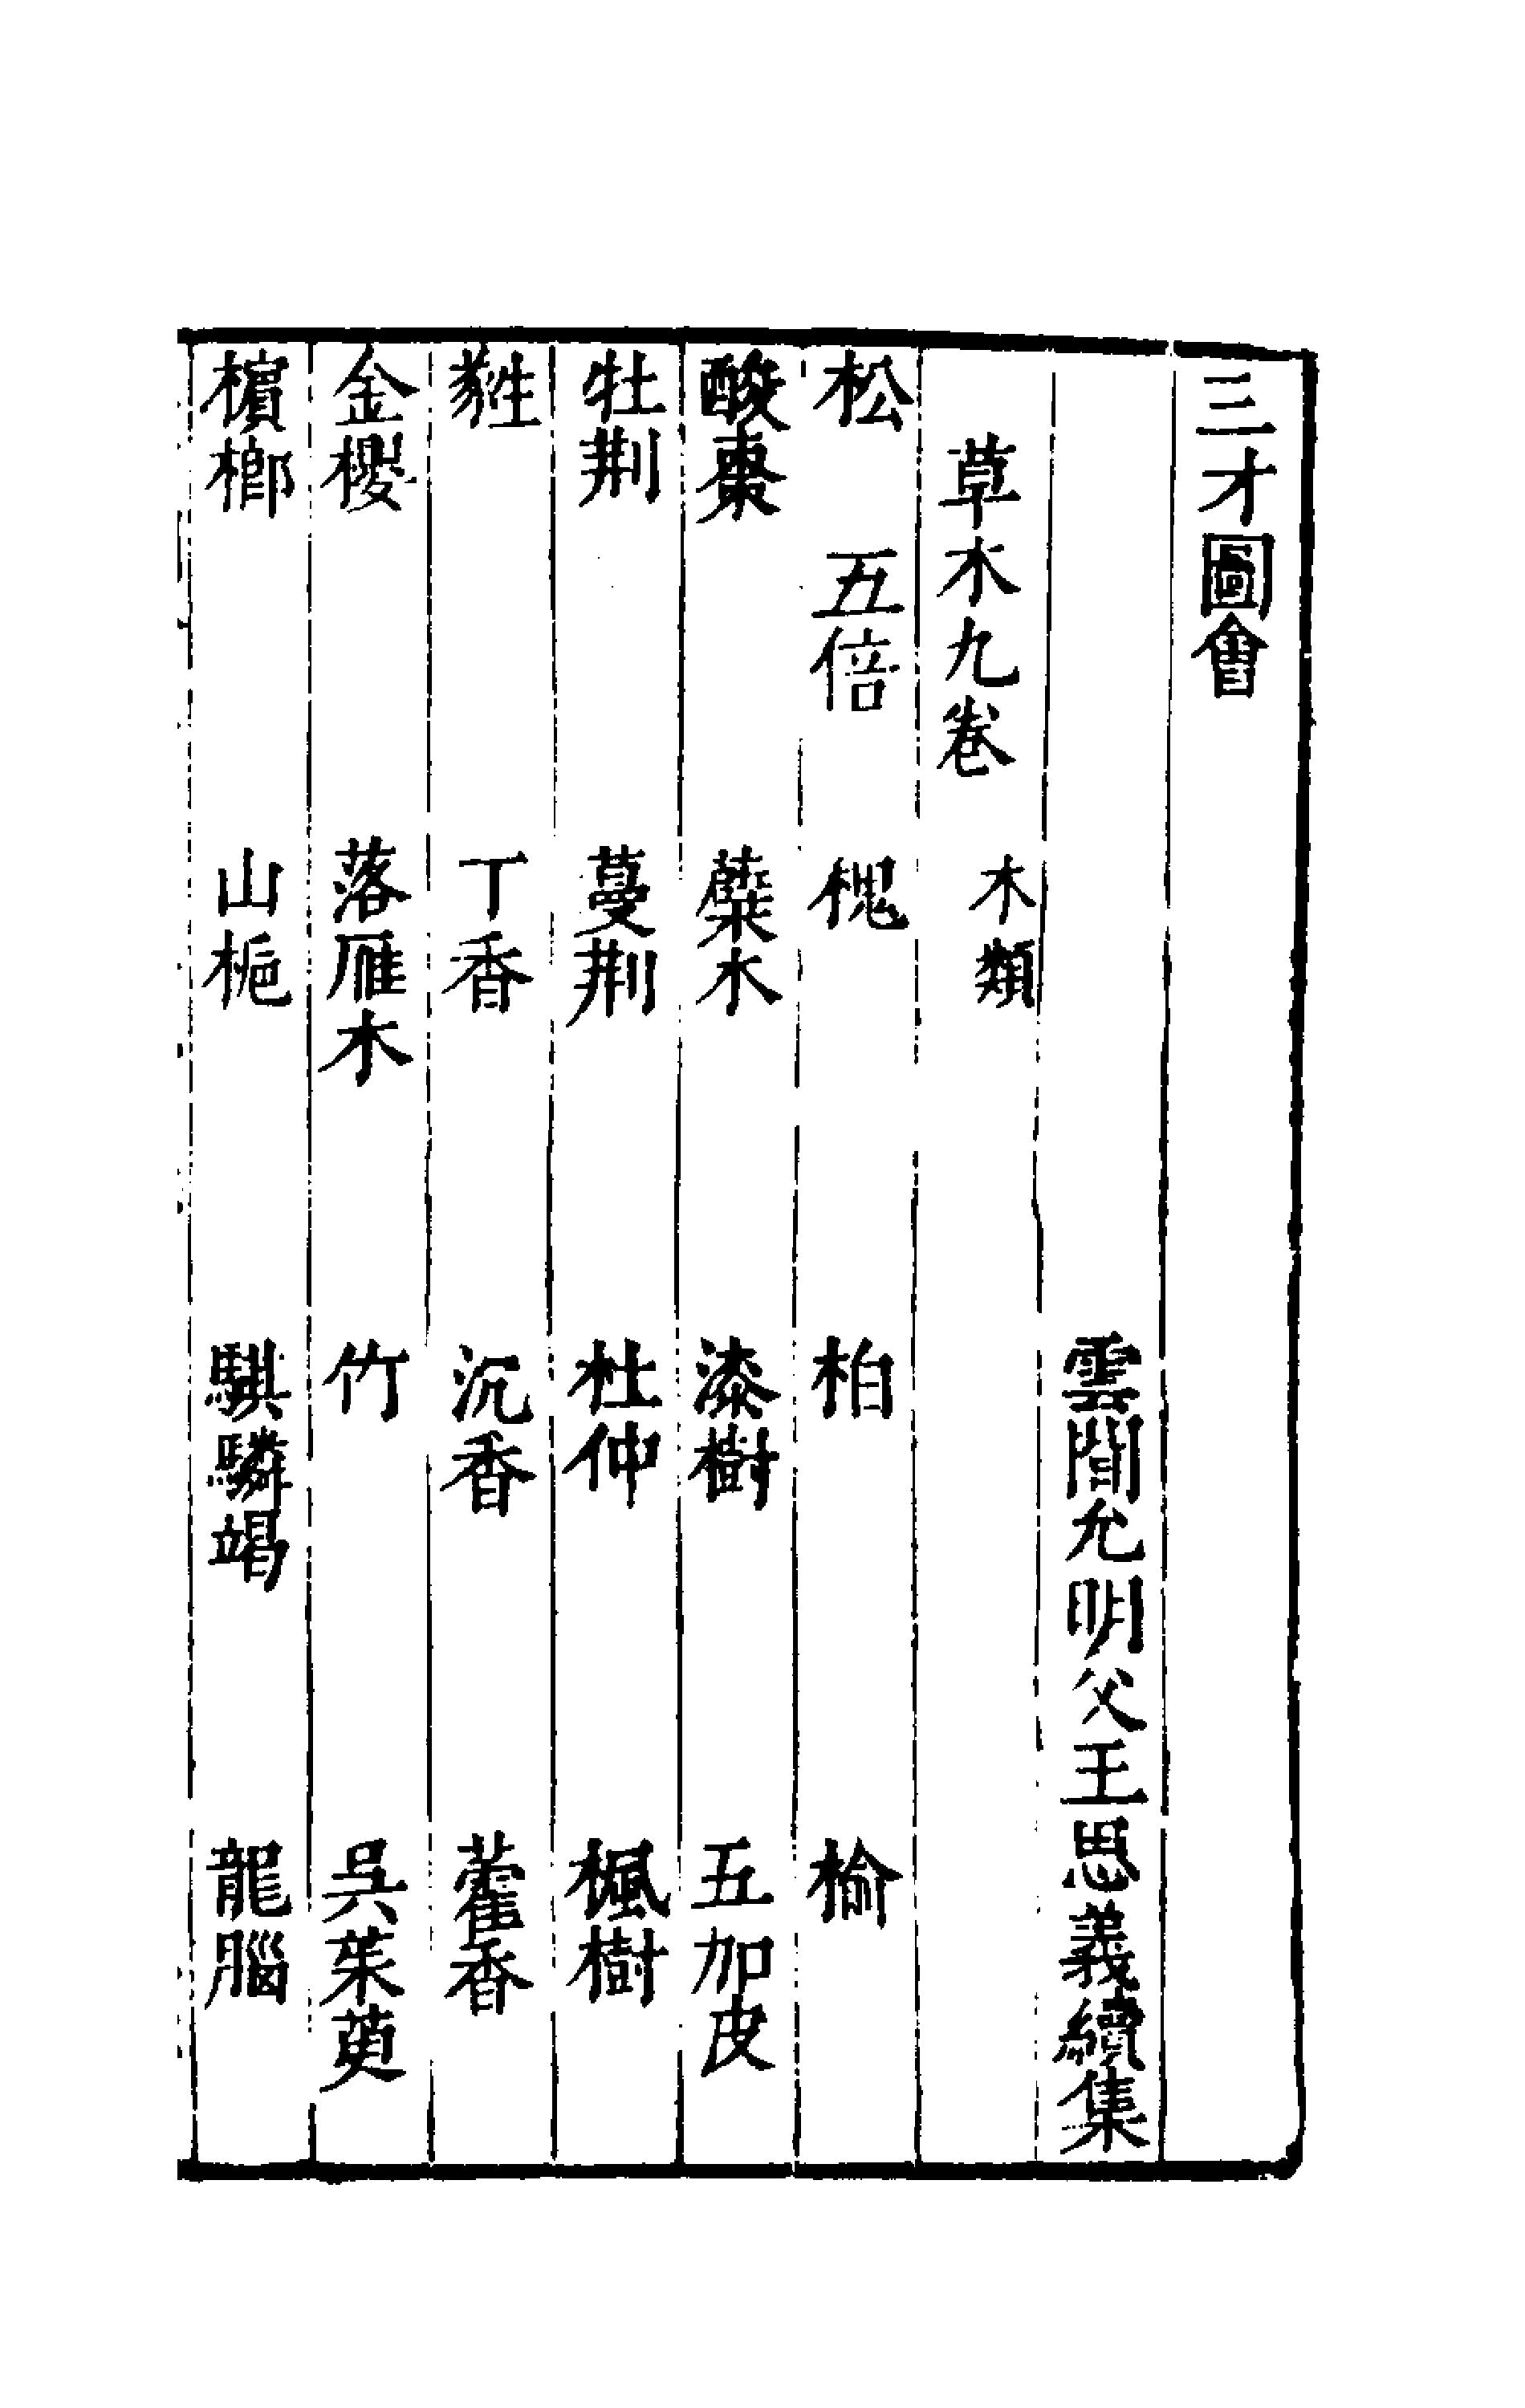 三才圖會
雲間允明父王思義續集
草木九卷 木類
松 五倍 槐 柏 榆
酸棗 蘗木 漆樹 五加皮
牡荆 蔓荆 杜仲 楓樹
丁香 沉香 藿香
金櫻 落雁木 竹 吳茱萸
檳榔 山梔 騏驎竭 龍腦